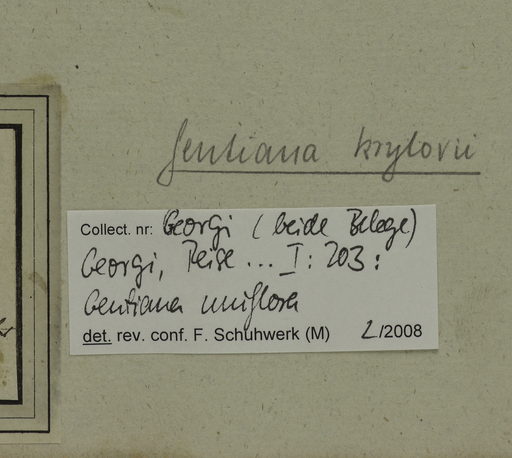 Gentiana krylovii
Collect. nr: Georgi (beide Belege)
Georgi, Reise ... I: 203:
Gentiana uniflora
det. rev. conf. F. Schuhwerk (M) 2/2008